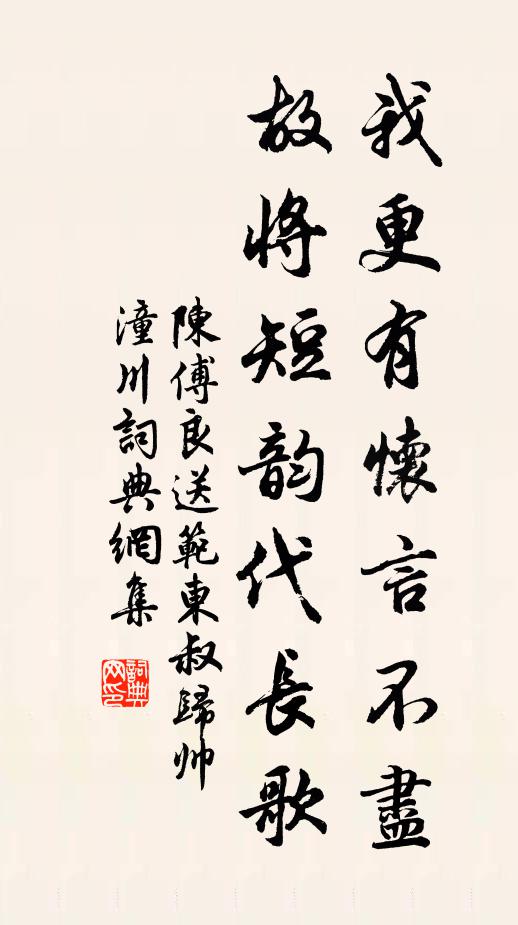 我更有懷言不盡
故將短韵代長歌
陳傅良送範東叔歸帅
潼川詞典網集
詞典网印